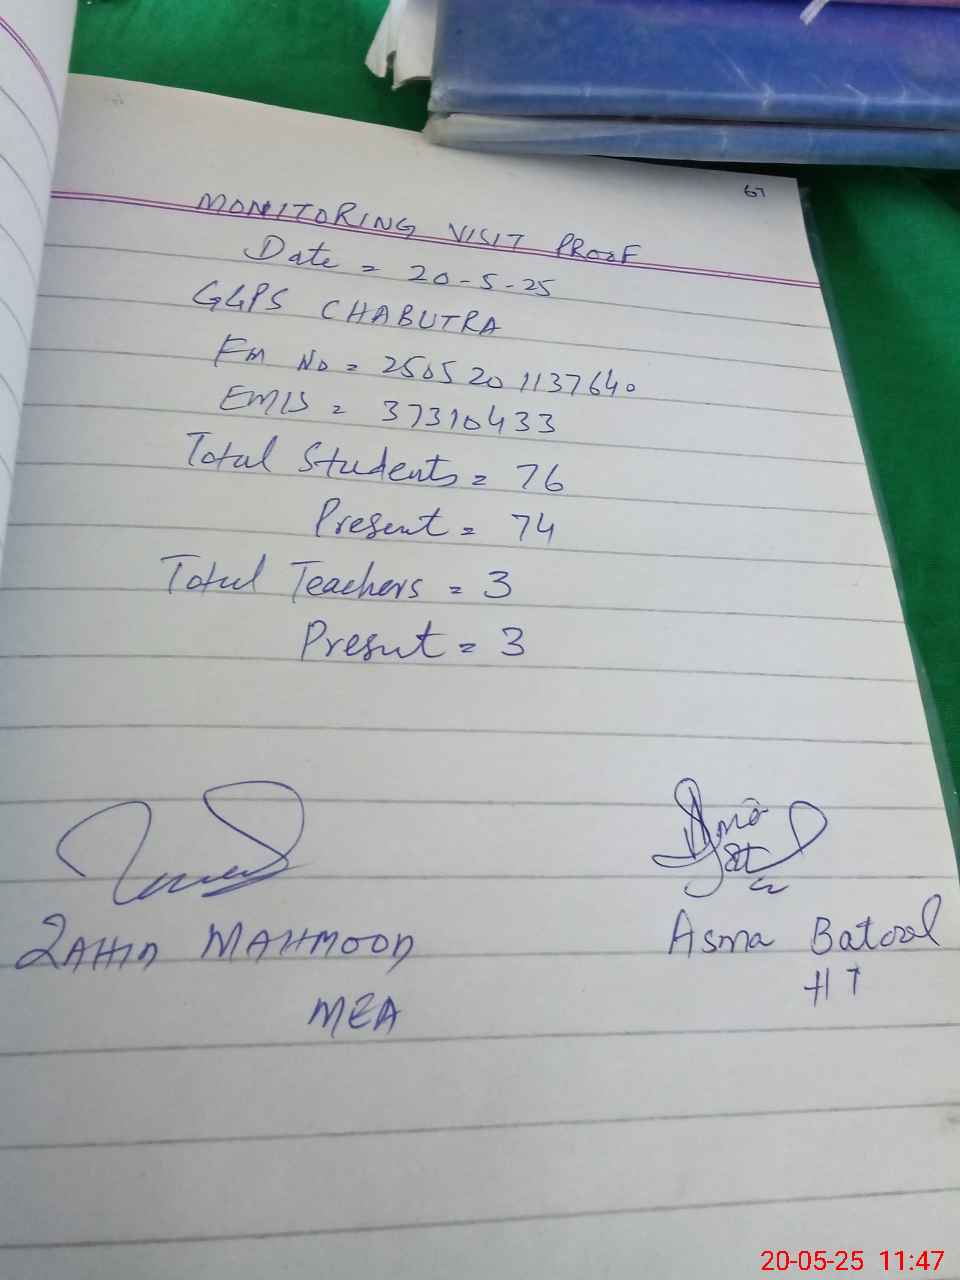 67
MONITORING VISIT PROOF
Date = 20-5-25
GGPS CHABUTRA
FM No = 2505201137640
EMIS = 37310433
Total Students = 76
Present = 74
Total Teachers = 3
Present = 3
ZAHID MAHMOOD
MEA
Asma Batool
HT
20-05-25 11:47